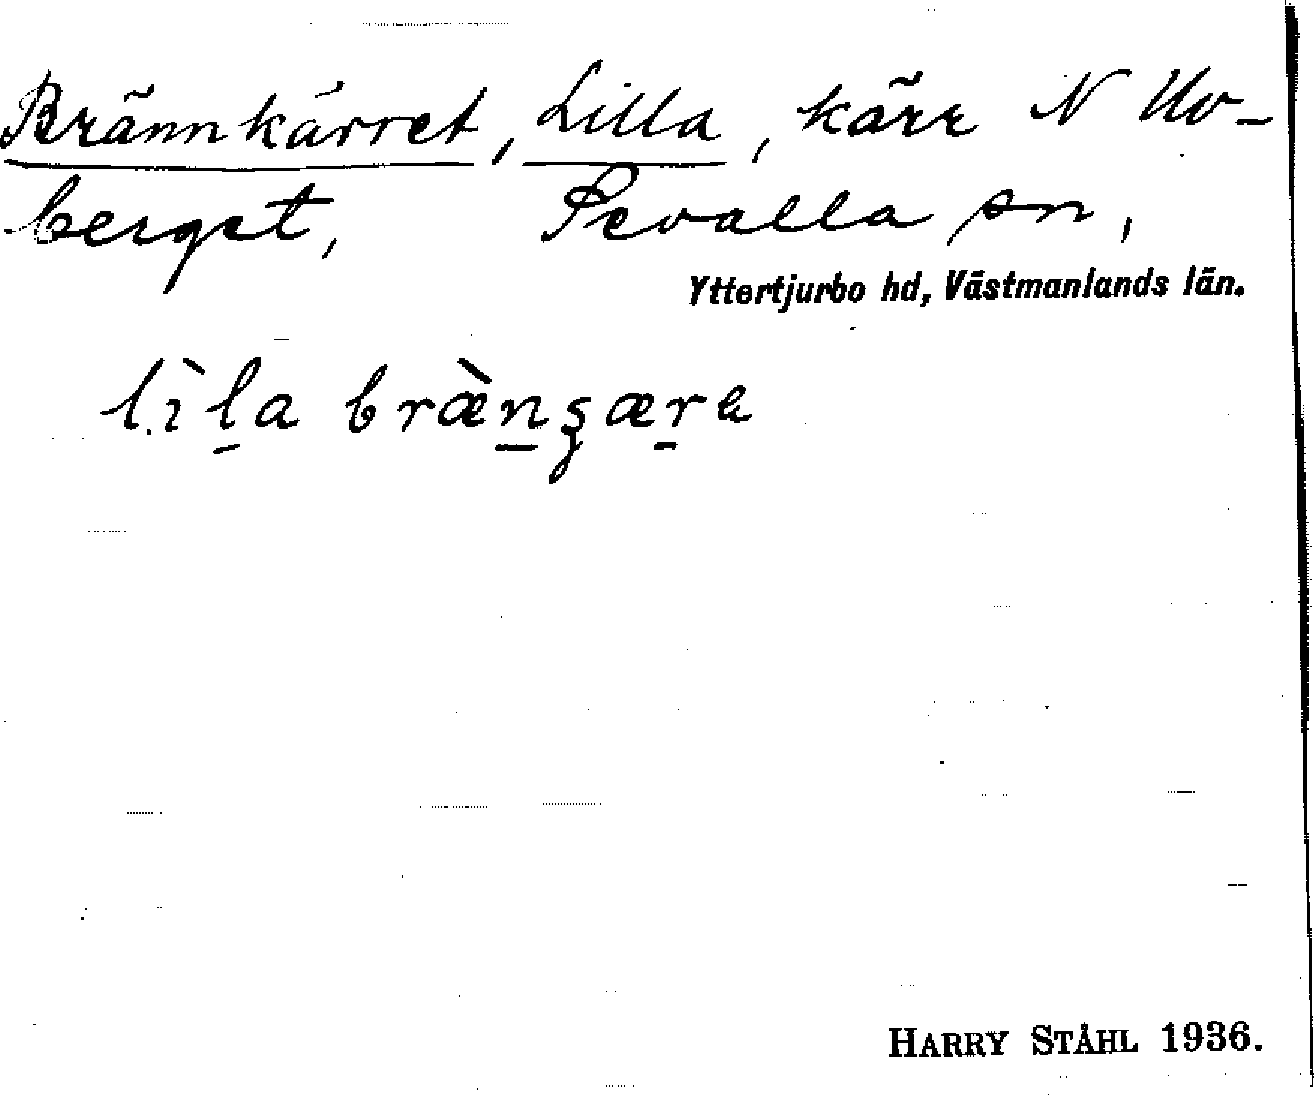 Brännkärret, Lilla, kärr N Uv-
berget, Sevalla sn,
Yttertjurbo hd, Västmanlands län.
lìl̠a bræ̀n̠ȿær̠e
HARRY STÅHL 1936.